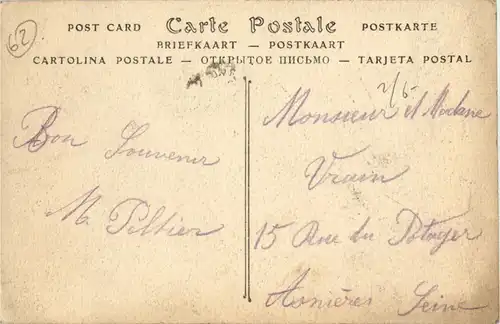 62
POST CARD Carte Postale POSTKARTE
BRIEFKAART — POSTKAART
CARTOLINA POSTALE — ОТКРЫТОЕ ПИСЬМО — TARJETA POSTAL
2/6
Bon Souvenir
M. Peltier
Monsieur et Madame
Vrain
15 Rue du Potager
Asnières Seine